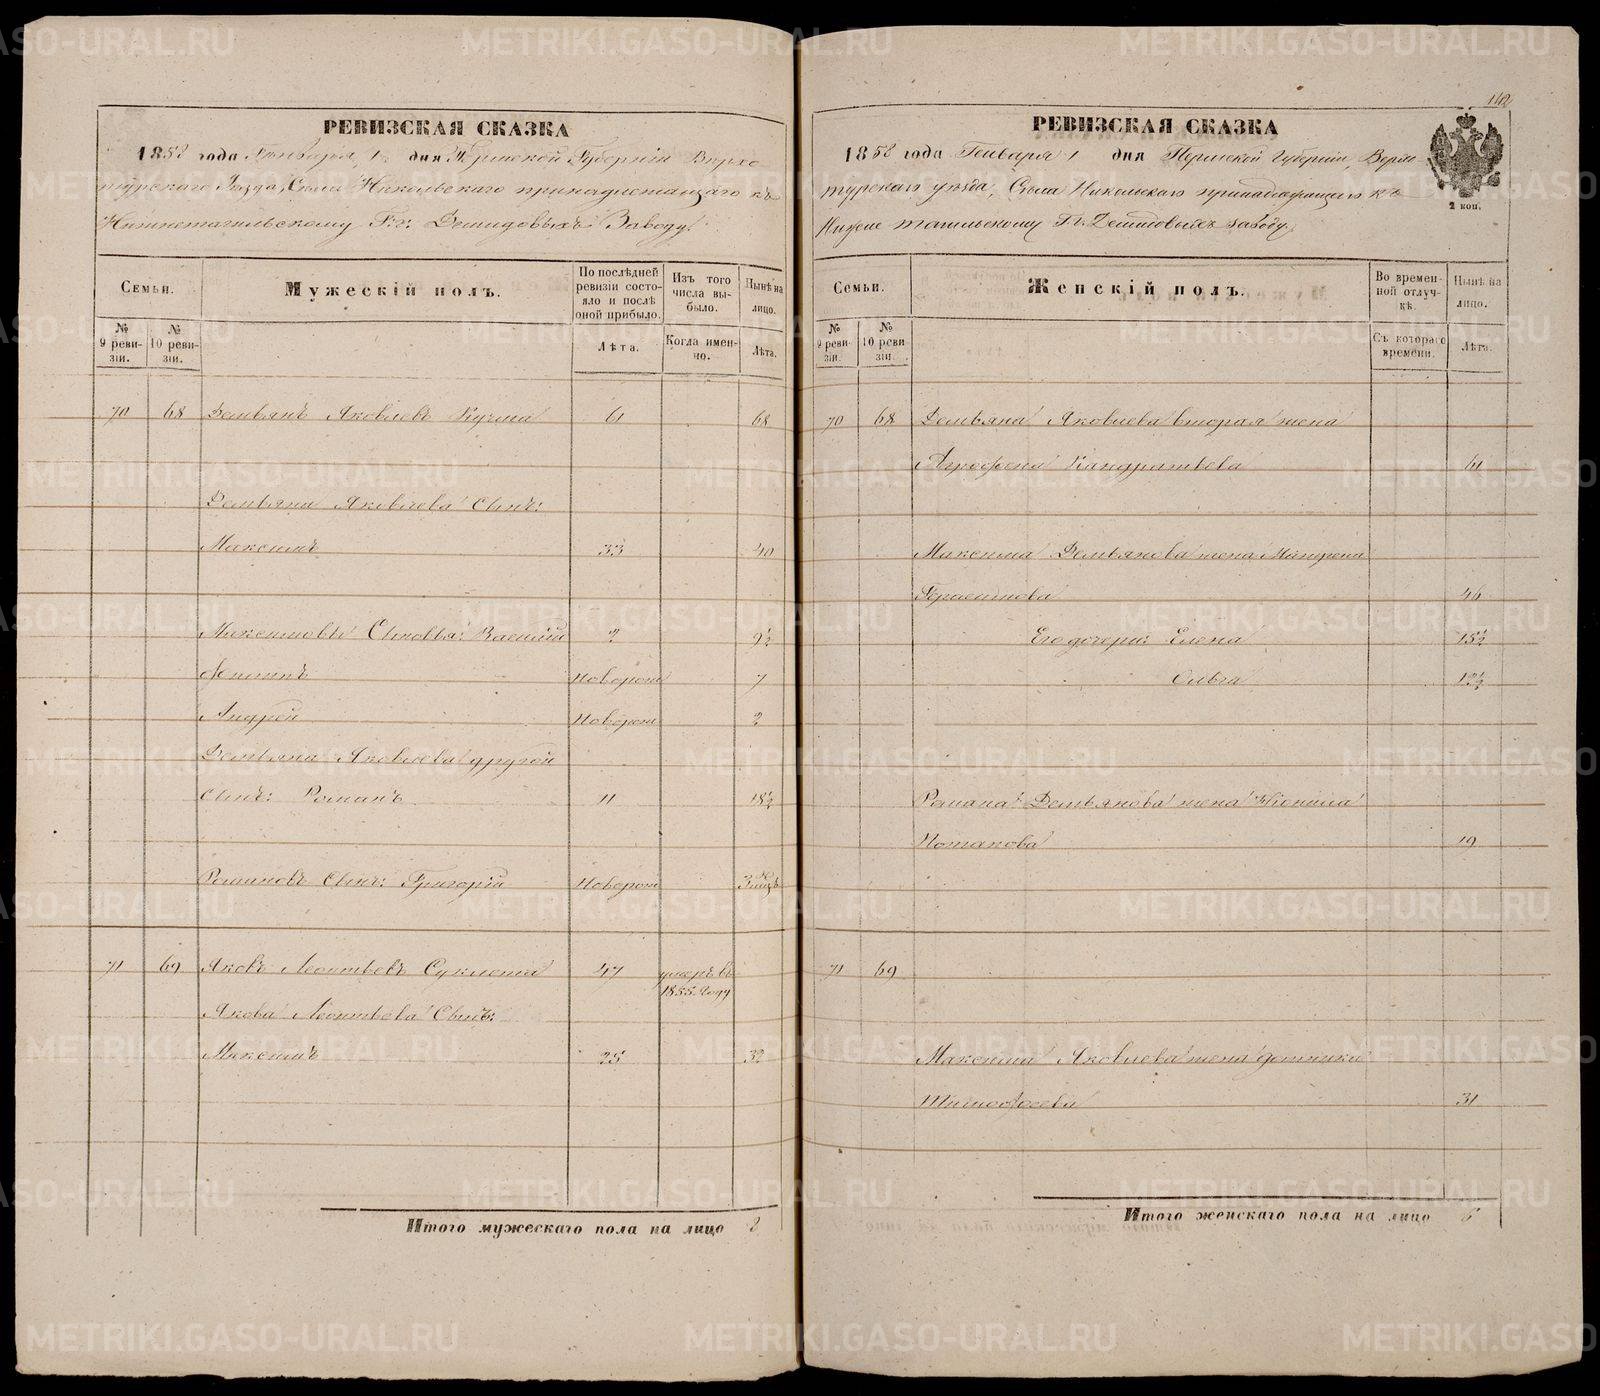 РЕВИЗСКАЯ СКАЗКА
1858 года Января 1 дня Пермской Губернiи Верхо
турскаго Уезда, Села Никольскаго принадлежащаго къ
Нижнетагильскому Г.г. Демидовыхъ Заводу
Семьи.
Мужескiй полъ.
По послѣдней ревизiи состояло и послѣ оной прибыло.
Изъ того числа выбыло.
Нынѣ на лицо.
№ 9 ревизiи.
№ 10 ревизiи.
Лѣта.
Когда именно.
Лѣта.
70 68 Демьянъ Яковлевъ Кучма 61 68
Демьяна Яковлева Сынъ:
Максимъ 33 40
Максимовы Сыновья: Василiй 2 9½
Новорож 7
Андрей Новорож 2
Демьяна Яковлева другой
Сынъ: Романъ 11 18½
Романовъ Сынъ: Григорiй Новорож
71 69 Яковъ Леонтьевъ 47 умеръ въ
1855 году
Якова Леонтьева Сынъ:
Максимъ 25 32
Итого мужескаго пола на лицо 8
112
РЕВИЗСКАЯ СКАЗКА
1858 года Генваря 1 дня Пермской Губернiи, Верхо
турскаго уѣзда, Села Никольскаго принадлежащаго къ
Нижне тагильскому Гг. Демидовыхъ заводу
2 коп.
Семьи.
Женскiй полъ.
Во временной отлучкѣ.
Нынѣ на лицо.
№ 9 ревизiи.
№ 10 ревизiи.
Съ котораго времени.
Лѣта.
70 68 Демьяна Яковлева вторая жена
Агрофена Кандратьева 61
Максима Демьянова жена Матрена
46
Его дочери: Елена 15½
Ольга 12½
Романа Демьянова жена
Потапова 19
71 69
Максима Яковлева жена
Тимофеева 31
Итого женскаго пола на лицо 6
METRIKI.GASO-URAL.RU